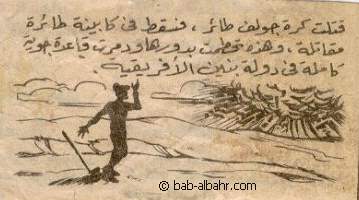 قتلت كرة جولف طائر، فسقط فى كابينة طائرة
مقاتلة، وهذه تحطمت بدورها ودمرت قاعدة جوية
كاملة فى دولة بنين الأفريقية.
© bab-albahr.com